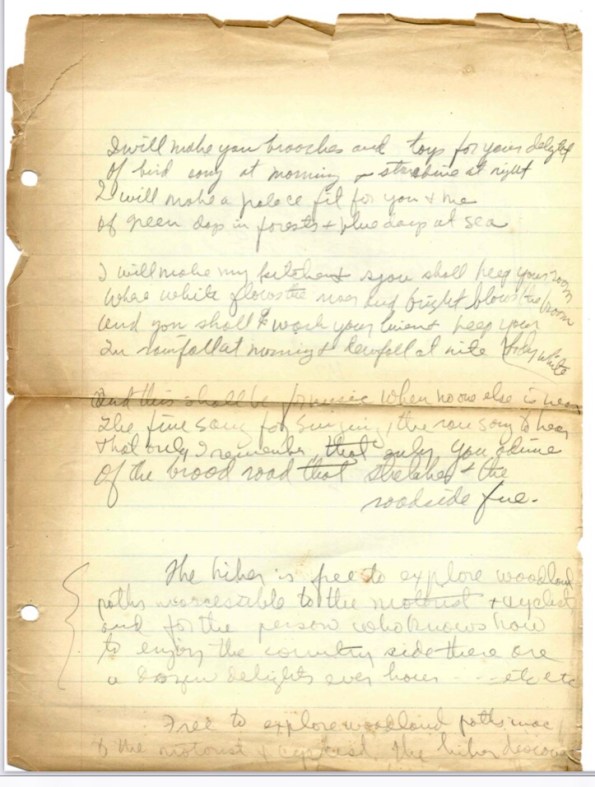 I will make you brooches and toys for your delight
Of bird song at morning & starshine at night
I will make a palace fit for you & me
Of green days in forests & blue days at sea
I will make my kitchen & you shall keep your room
Where white flows the river and bright blows the broom
And you shall wash your linen & keep your
body white
In rainfall at morning & dewfall at nite
And this shall be for music when no one else is near
The fine song for singing, the rare song to hear
That only I remember, that only you admire
Of the broad road that stretches & the
roadside fire.
The hiker is free to explore woodland
paths inaccessible to the motorist & cyclist
and for the person who knows how
to enjoy the country side there are
a dozen delights every hour --- etc etc
Free to explore woodland paths inac
to the motorist & cyclist, the hiker